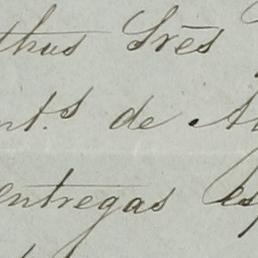 thus Srês
nt.s de A
entregas es